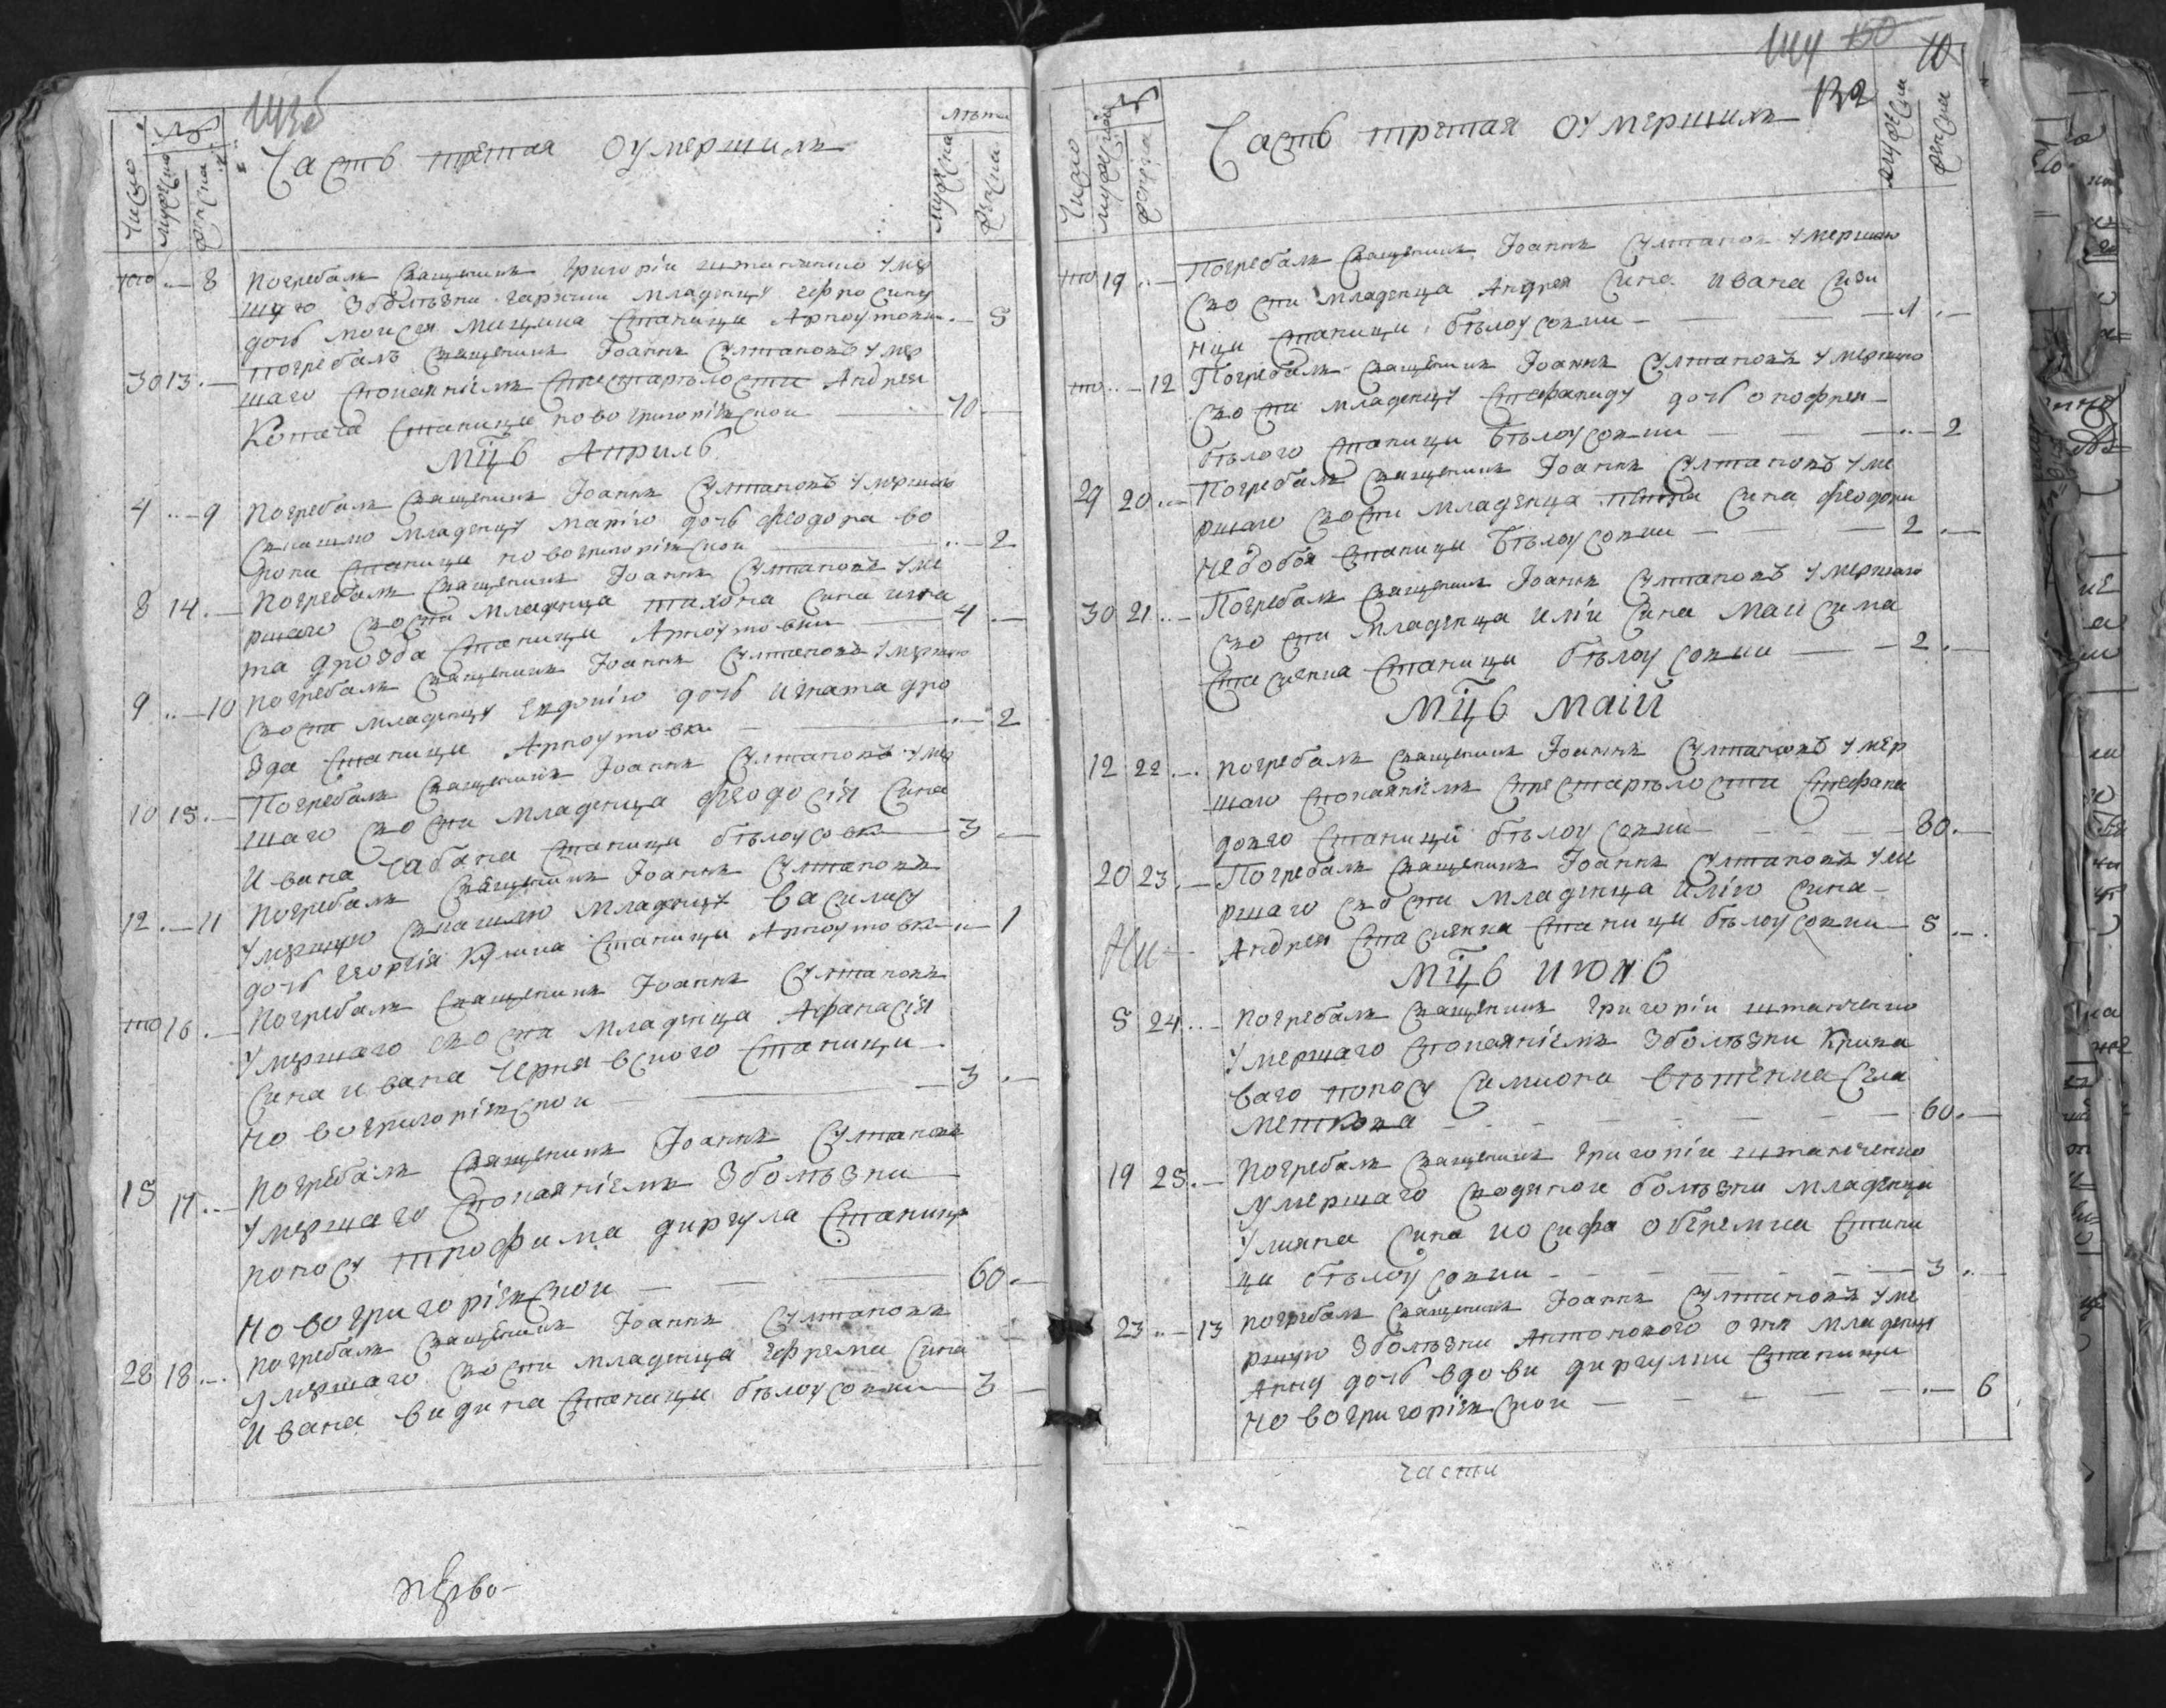 Часть третая оумершихъ
Число
мужеска
женска
Лѣта
мужеска
женска
тогo 8 Погребалъ священикъ Григорій штанченко умер
шую зболѣзни гарячки младенцу Ефросину
дочь Моисея Мицика станици Арноутовки 5
30 13 Погребалъ священикъ Іоаннъ Султановъ умер
шаго споканніемъ спрестарѣлости Андрея
Копача станици новогригоріевской 70
Мцъ Априль
4 9 Погребалъ священикъ Іоаннъ Султановъ умершую
скашлю младенцу Марію дочь Феодора во
рони станици новогригоріевской 2
8 14 Погребалъ священикъ Іоаннъ Султановъ уме
ршаго своспи младенца тихона сина игна
та дрозда станици Арноутовки 4
9 10 Погребалъ священикъ Іоаннъ Султановъ умершую
своспи младенцу Евдокію дочь Игната дро
зда станици Арноутовки 2
10 15 Погребалъ священикъ Іоаннъ Султановъ умер
шаго своспи младенца Феодосія сина
Ивана Чабана станици бѣлоусовки 3
12 11 Погребалъ священикъ Іоаннъ Султановъ
умершую скашлю младенцу Василису
дочь Георгія Кулика станици Арноутовки 1
того 16 Погребалъ священикъ Іоаннъ Султановъ
умершаго своспи младенца Афанасія
сина Ивана Чернявского станици
новогригоріевской 3
15 17 Погребалъ священикъ Іоаннъ Султановъ
умершаго споканніемъ зболѣзни
поносу трофима диргула станици
новогригоріевской 60
28 18 Погребалъ священикъ Іоаннъ Султановъ
умершаго своспи младенца Ефрема сина
Ивана видина станици бѣлоусовки 3
перво
150
70
132
Часть третая оумершихъ
Число
мужеска
женска
мужеска
женска
того 19 Погребалъ священикъ Іоаннъ Султановъ умершаго
своспи младенца Андрея сина Ивана
нци станици бѣлоусовки 1
того 12 Погребалъ священикъ Іоаннъ Султановъ умершую
своспи младенцу Стефаниду дочь онофрея
бѣлого станици бѣлоусовки 2
29 20 Погребалъ священикъ Іоаннъ Султановъ уме
ршаго своспи младенца сина Феодора
недобоя станици бѣлоусовки 2
30 21 Погребалъ священикъ Іоаннъ Султановъ умершаго
своспи младенца иліи сина Максима
стасиенка станици бѣлоусовки 2
Мцъ Маій
12 22 Погребалъ священикъ Іоаннъ Султановъ умер
шаго споканніемъ спрестарѣлости Стефана
довго станици бѣлоусовки 80
20 23 Погребалъ священикъ Іоаннъ Султановъ уме
ршаго своспи младенца илію сина
Андрея стасиенка станици бѣлоусовки 5
Мцъ июнь
5 24 Погребалъ священикъ Григорій штанченко
умершаго споканніемъ зболѣзни Крива
ваго поносу Симиона села
60
19 25 Погребалъ священикъ Григорій штанченко
умершаго сводяной болѣзни младенца
Улияна сина иосифа оберемка стани
ци бѣлоусовки 3
23 13 Погребалъ священикъ Іоаннъ Султановъ уме
ршую зболѣзни Антонового огня младенцу
Анну дочь вдови диргулки станици
новогригоріевской 6
части